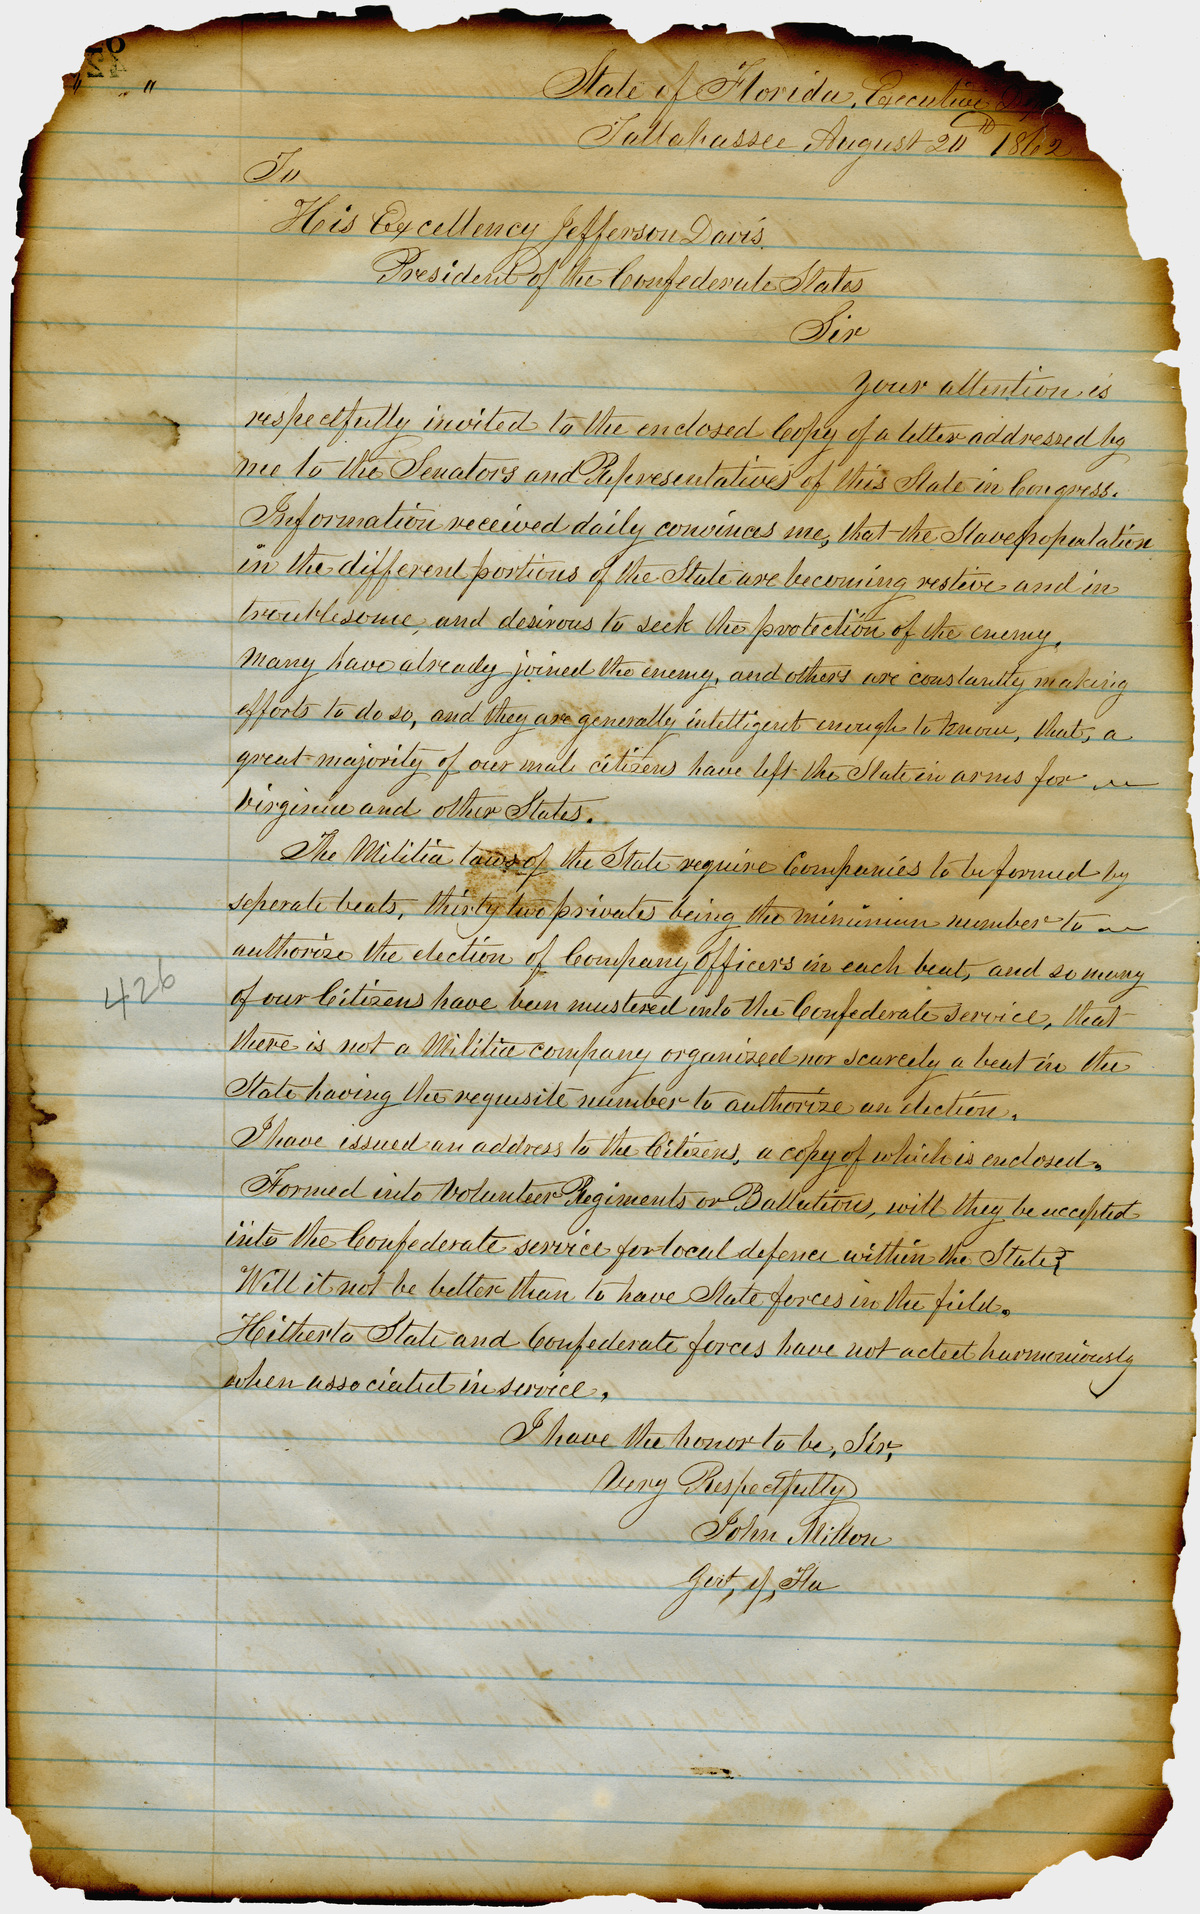 State of Florida, Executive
Tallahassee August 20th 1862
To
His Excellency Jefferson Davis.
President of the Confederate States
Sir
Your attention is
respectfully invited to the enclosed Copy of a letter addressed by
me to the Senators and Representatives of this State in Congress.
Information received daily convinces me, that the Slave population
in the different portions of the State are becoming restive and in
troublesome, and desirous to seek the protection of the enemy.
Many have already joined the enemy, and others are constantly making
efforts to do so, and they are generally intelligent enough to know, that, a
great majority of our male citizens have left the State in arms for
Virginia and other States.
The Militia laws of the State require Companies to be formed by
seperate beats, thirty two privates being the minimum number to
authorize the election of Company officers in each beat, and so many
of our Citizens have been mustered into the Confederate service, that
there is not a Militia company organized nor scarcely a beat in the
State having the requisite number to authorize an election.
I have issued an address to the Citizens, a copy of which is enclosed.
Formed into Volunteer Regiments or Battalions, will they be accepted
into the Confederate service for local defence within the State?
Will it not be better than to have State forces in the field.
Hitherto State and Confederate forces have not acted harmoniously
when associated in service.
I have the honor to be, Sir,
Very Respectfully
John Milton
Govt, of, Fla
426